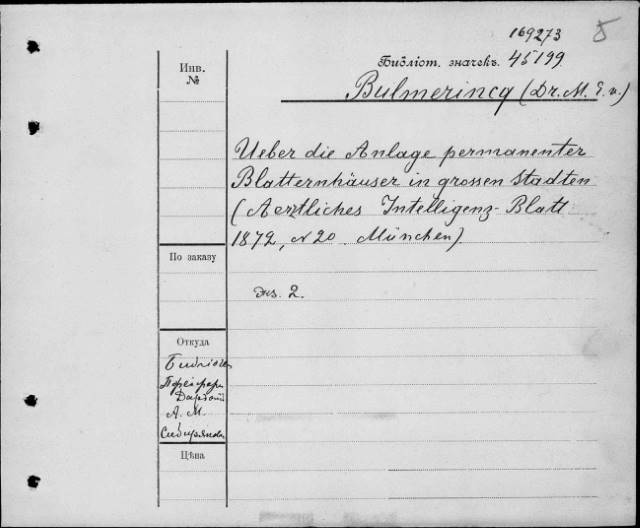 169273
5
Библіот. значекъ. 45199
Bulmerincq (Dr. M. E. v.)
Инв.
№
Ueber die Anlage permanenter
Blatternhäuser in grossen Stadten
(Aerztliches Intelligenz-Blatt
1872, N 20. München).
По заказу
Экз. 2.
Откуда
А. М.
Сибирякова
Цѣна